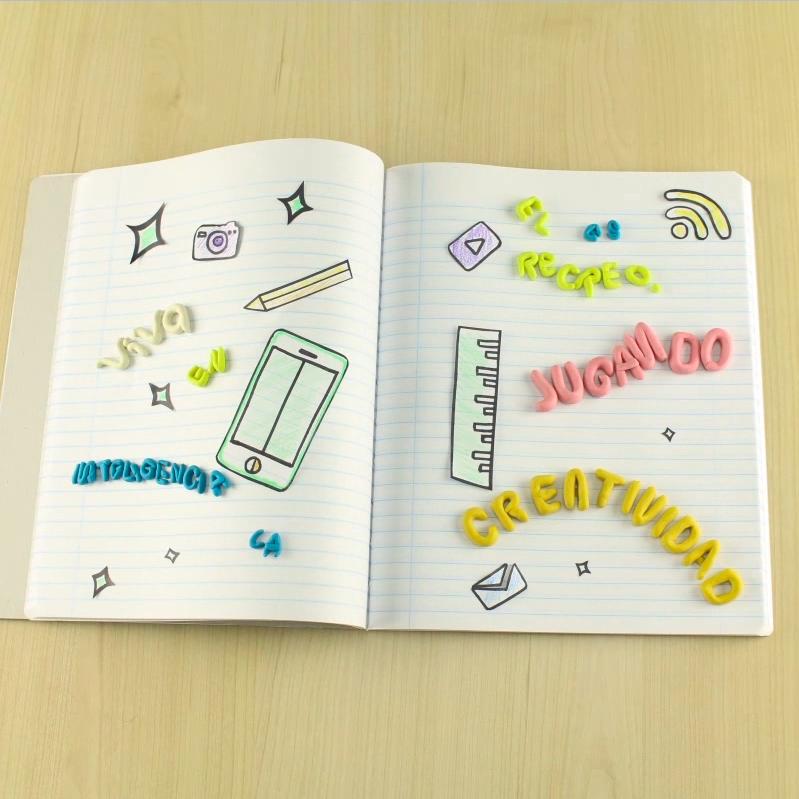 VIVA
EN
INTELIGENCIA
LA
EL
ES
RECREO.
JUGANDO
CREATIVIDAD